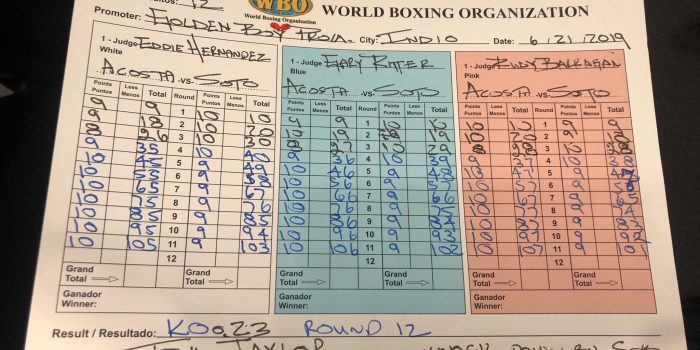 12
WBO
World Boxing Organization
WORLD BOXING ORGANIZATION
Promoter: GOLDEN BOY PROM. City: INDIO Date: 6/21/2019
1 - Judge EDDIE HERNANDEZ
White
ACOSTA .vs. SOTO
1 - Judge GARY RITTER
Blue
ACOSTA .vs. SOTO
1 - Judge RUDY BARRAGAN
Pink
ACOSTA .vs. SOTO
Points Puntos Less Menos Total Round Points Puntos Less Menos Total Points Puntos Less Menos Total Round Points Puntos Less Menos Total Points Puntos Less Menos Total Round Points Puntos Less Menos Total
9 9 1 10 10 9 9 1 10 10 10 10 1 9 9
9 18 2 10 20 10 19 2 19 10 2 9 18
8 26 3 10 30 8 27 3 10 29 3 10 28
9 35 4 10 40 9 36 4 10 39 9 4 10 38
10 45 5 9 49 10 46 5 9 48 10 5 9 47
10 55 6 9 58 10 56 6 9 57 10 57 6 9 56
10 65 7 9 67 10 66 7 9 66 10 67 7 9 65
10 75 8 9 76 10 76 8 9 75 10 77 8 9 74
10 85 9 9 85 10 86 9 9 84 10 87 9 9 83
10 95 10 9 94 10 96 10 9 93 10 97 10 9 92
10 105 11 9 103 10 106 11 9 102 10 107 11 9 101
12 12 12
Grand Total Grand Total Grand Total Grand Total Grand Total Grand Total
Ganador Winner: Ganador Winner: Ganador Winner:
Result / Resultado: KO 0.23 ROUND 12
TAYLOR